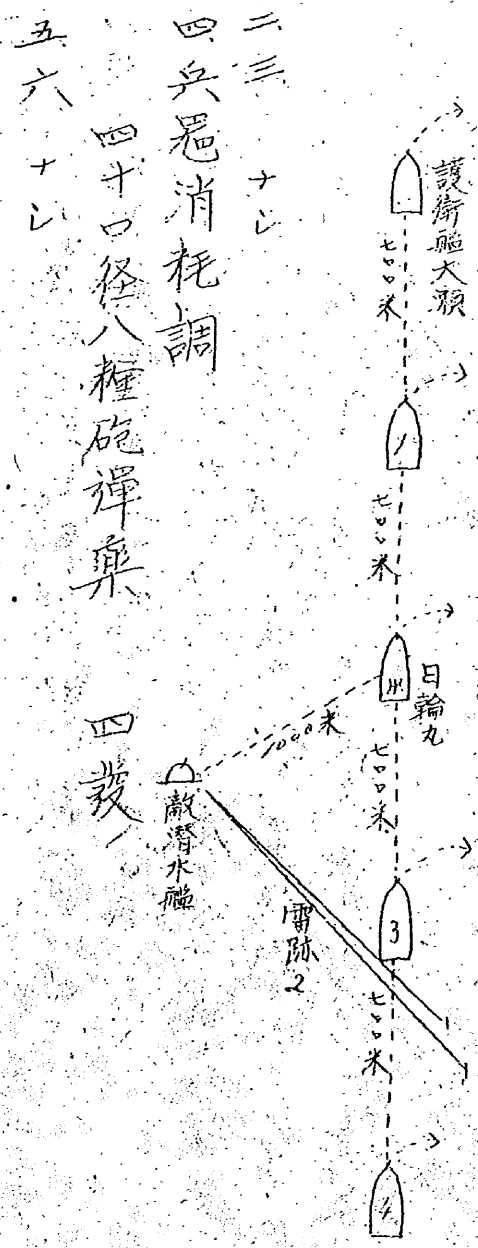 護衛艦大瀬
七〇〇米
1
七〇〇米
日輪丸
1000米
七〇〇米
敵潜水艦
雷跡2
3
七〇〇米
4
二、三、ナシ
四、兵器消耗調
四十口径八糎砲弾薬 四發
五、六、ナシ